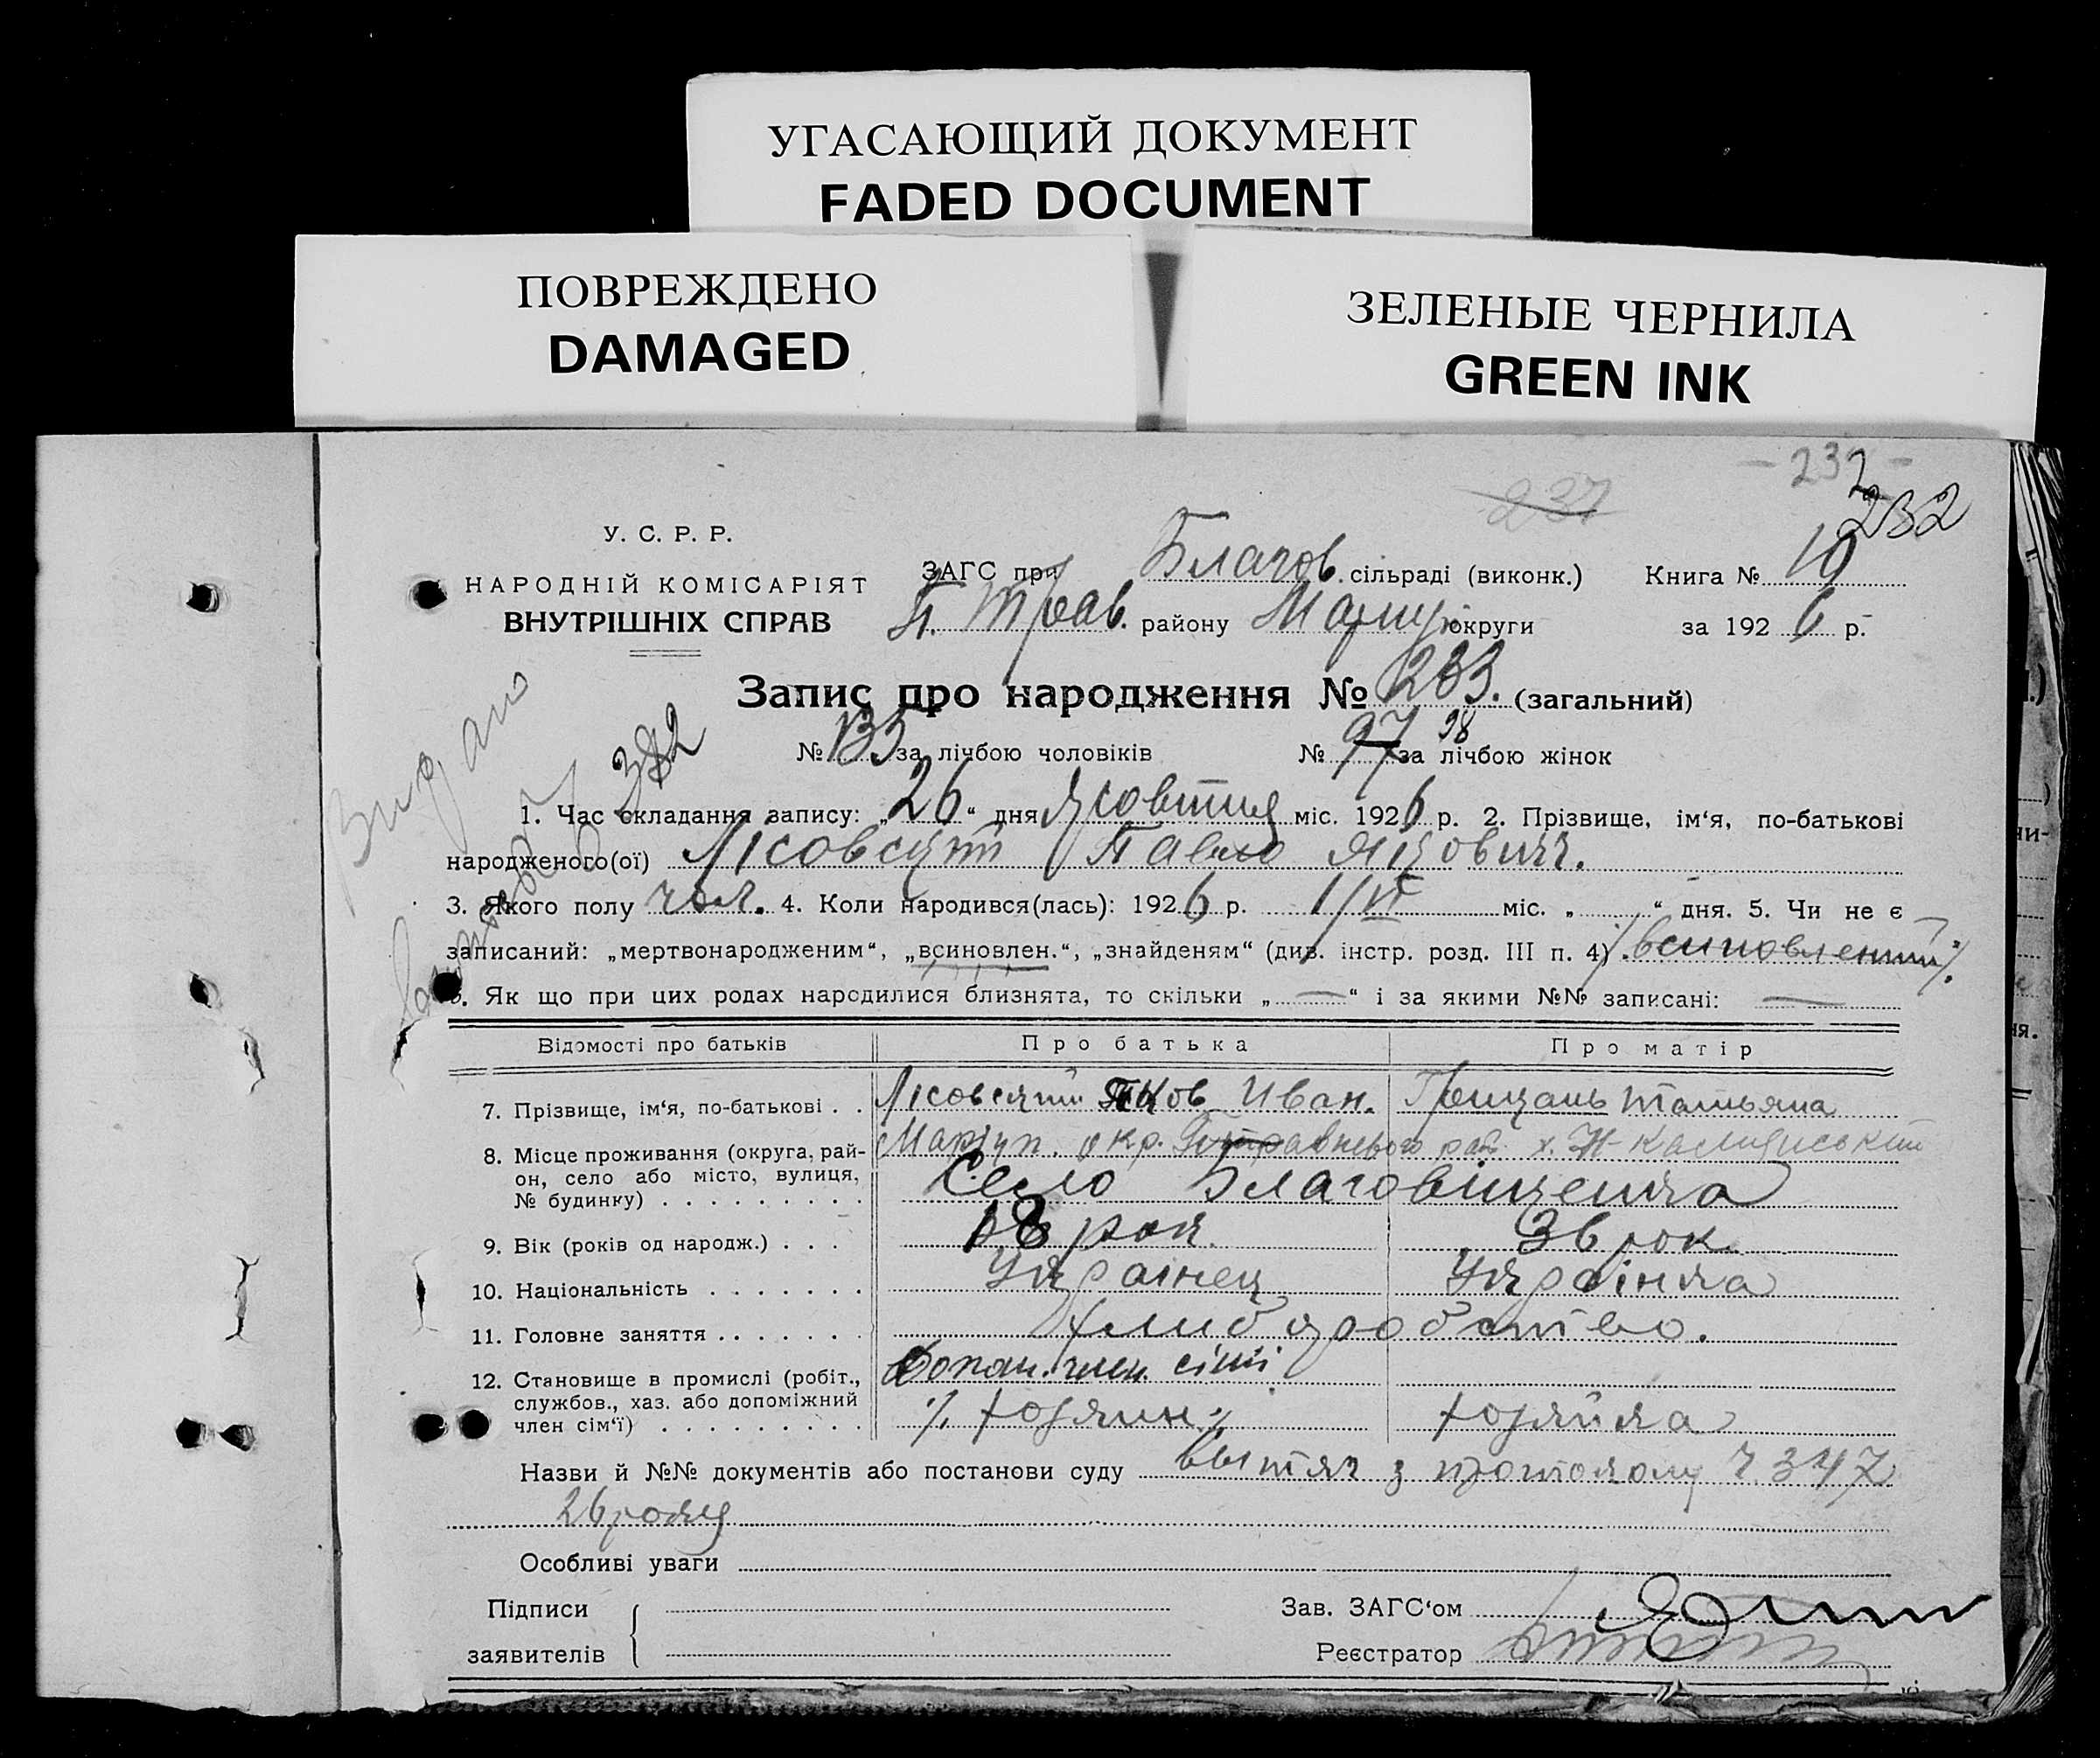 УГАСАЮЩИЙ ДОКУМЕНТ
FADED DOCUMENT
ПОВРЕЖДЕНО
DAMAGED
ЗЕЛЕНЫЕ ЧЕРНИЛА
GREEN INK
- 232 -
237
232
У. С. Р. Р.
НАРОДНІЙ КОМІСАРІЯТ
ВНУТРІШНІХ СПРАВ
ЗАГС при Благов. сільраді (виконк.) Книга № 10
П. Трав. району Маріуп округи за 1926 р.
Запис про народження № 233. (загальний)
№ 135 за лічбою чоловіків № 97 98 за лічбою жінок
Видано
382
1. Час складання запису: „26“ дня жовтня міс. 1926 р. 2. Прізвище, ім‘я, по-батькові
народженого(ої) Лісовский Павло Якович.
3. Якого полу чол. 4. Коли народився(лась): 1926 р. 1/VI міс. „ “ дня. 5. Чи не є
записаний: „мертвонародженим“, „всиновлен.“, „знайденям“ (див. інстр. розд. III п. 4) всиновлений
6. Як що при цих родах народилися близнята, то скільки „—“ і за якими №№ записані: —
Відомості про батьків Про батька Про матір
7. Прізвище, ім‘я, по-батькові . . Лісовский Яков Иван. Грицань Татьяна
8. Місце проживання (округа, рай-
он, село або місто, вулиця,
№ будинку) . . . . . . . . .
Маріуп. окр. х.
Село Благовіщенка
9. Вік (років од народж.) . . . 18 рок. 36 рок.
10. Національність . . . . . . . Українец Українка
11. Головне заняття . . . . . . . хлиборобство.
12. Становище в промислі (робіт.,
службов., хаз. або допоміжний
член сім‘ї) . . . . . . . . .
допом. член сімї
хозяин хозяйка
Назви й №№ документів або постанови суду вытяг з протоколу ч. 347
26 року
Особливі уваги
Підписи
заявителів
Зав. ЗАГС‘ом
Реєстратор